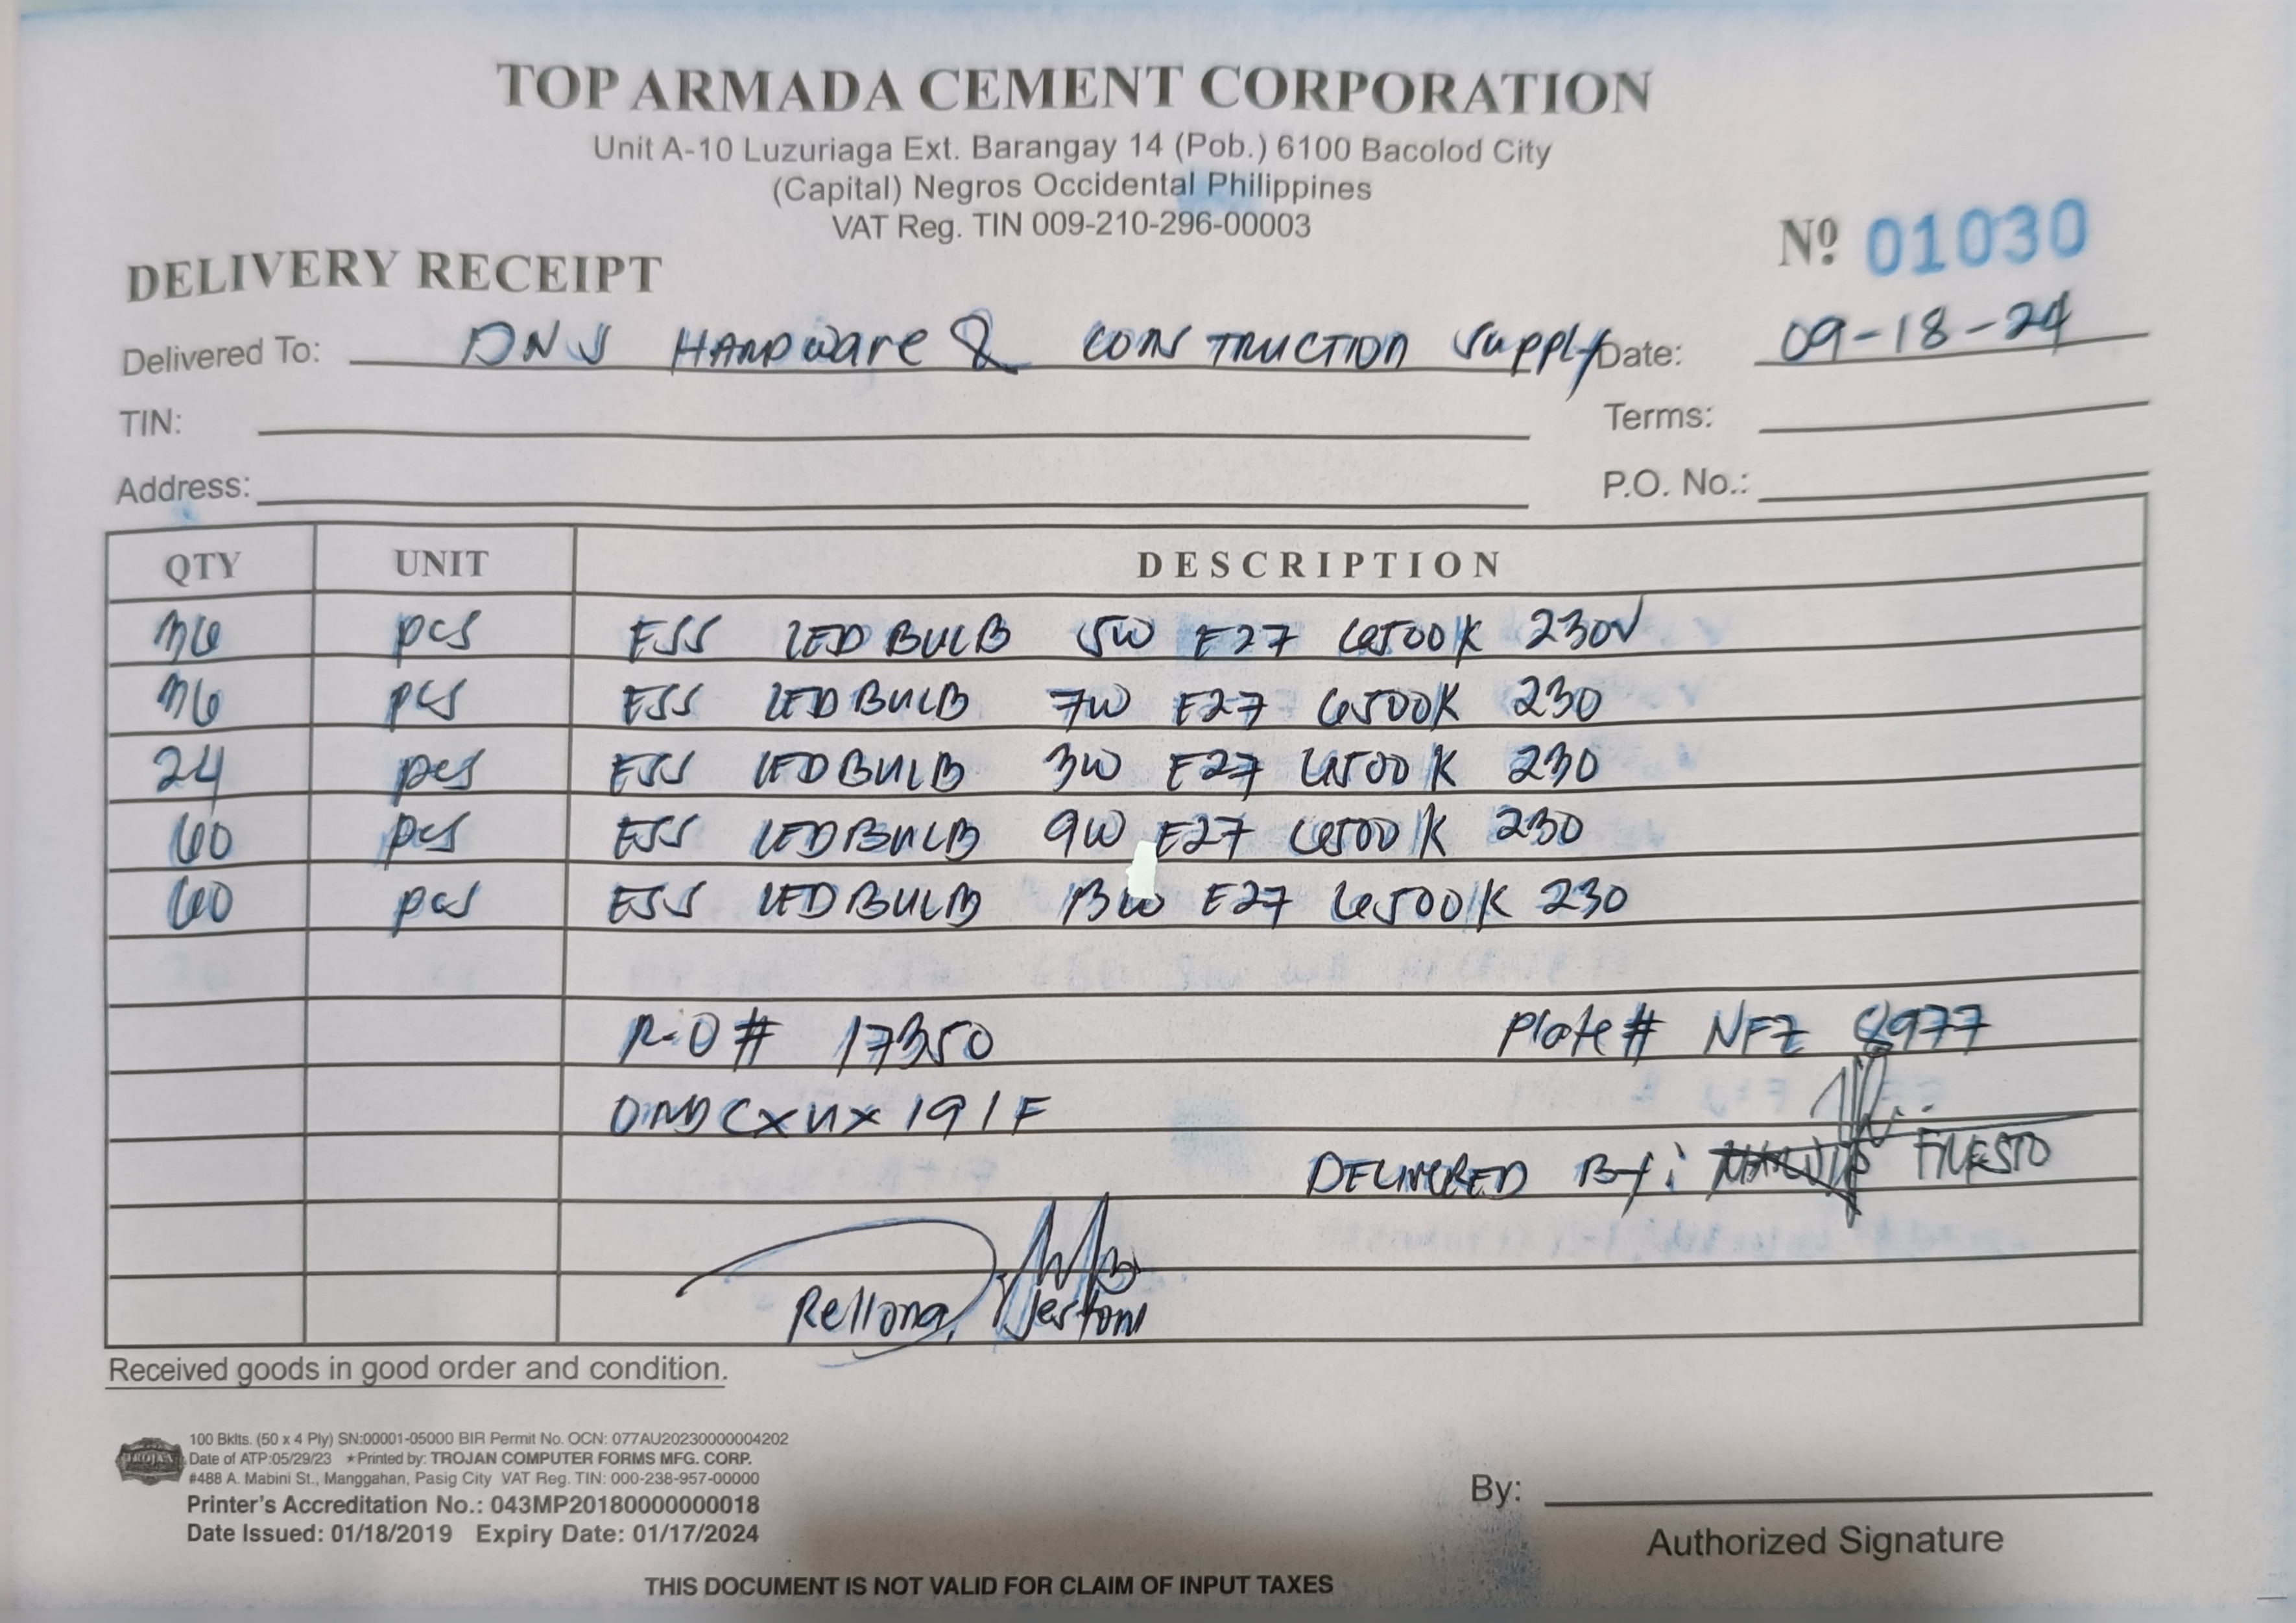 TOP ARMADA CEMENT CORPORATION
Unit A-10 Luzuriaga Ext. Barangay 14 (Pob.) 6100 Bacolod City
(Capital) Negros Occidental Philippines
VAT Reg. TIN 009-210-296-00003
Nº 01030
DELIVERY RECEIPT
Delivered To: DNS HARDware & CONSTRUCTION Supply Date: 09-18-24
TIN: Terms:
Address: P.O. No.:
QTY UNIT DESCRIPTION
36 pcs ESS LED BULB 5W E27 6500K 230V
36 pcs ESS LED BULB 7W E27 6500K 230
24 pcs ESS LED BULB 3W E27 6500K 230
60 pcs ESS LED BULB 9W E27 6500K 230
60 pcs ESS LED BULB 13W E27 6500K 230
R-O # 17350 Plate # NFZ 8977
OMDCXUX191F
DELIVERED By: FILESTO
Rellona, Jestoni
Received goods in good order and condition.
TROJAN
100 Bklts. (50 x 4 Ply) SN:00001-05000 BIR Permit No. OCN: 077AU20230000004202
Date of ATP:05/29/23 ★Printed by: TROJAN COMPUTER FORMS MFG. CORP.
#488 A. Mabini St., Manggahan, Pasig City VAT Reg. TIN: 000-238-957-00000
Printer's Accreditation No.: 043MP20180000000018
Date Issued: 01/18/2019 Expiry Date: 01/17/2024
By:
Authorized Signature
THIS DOCUMENT IS NOT VALID FOR CLAIM OF INPUT TAXES